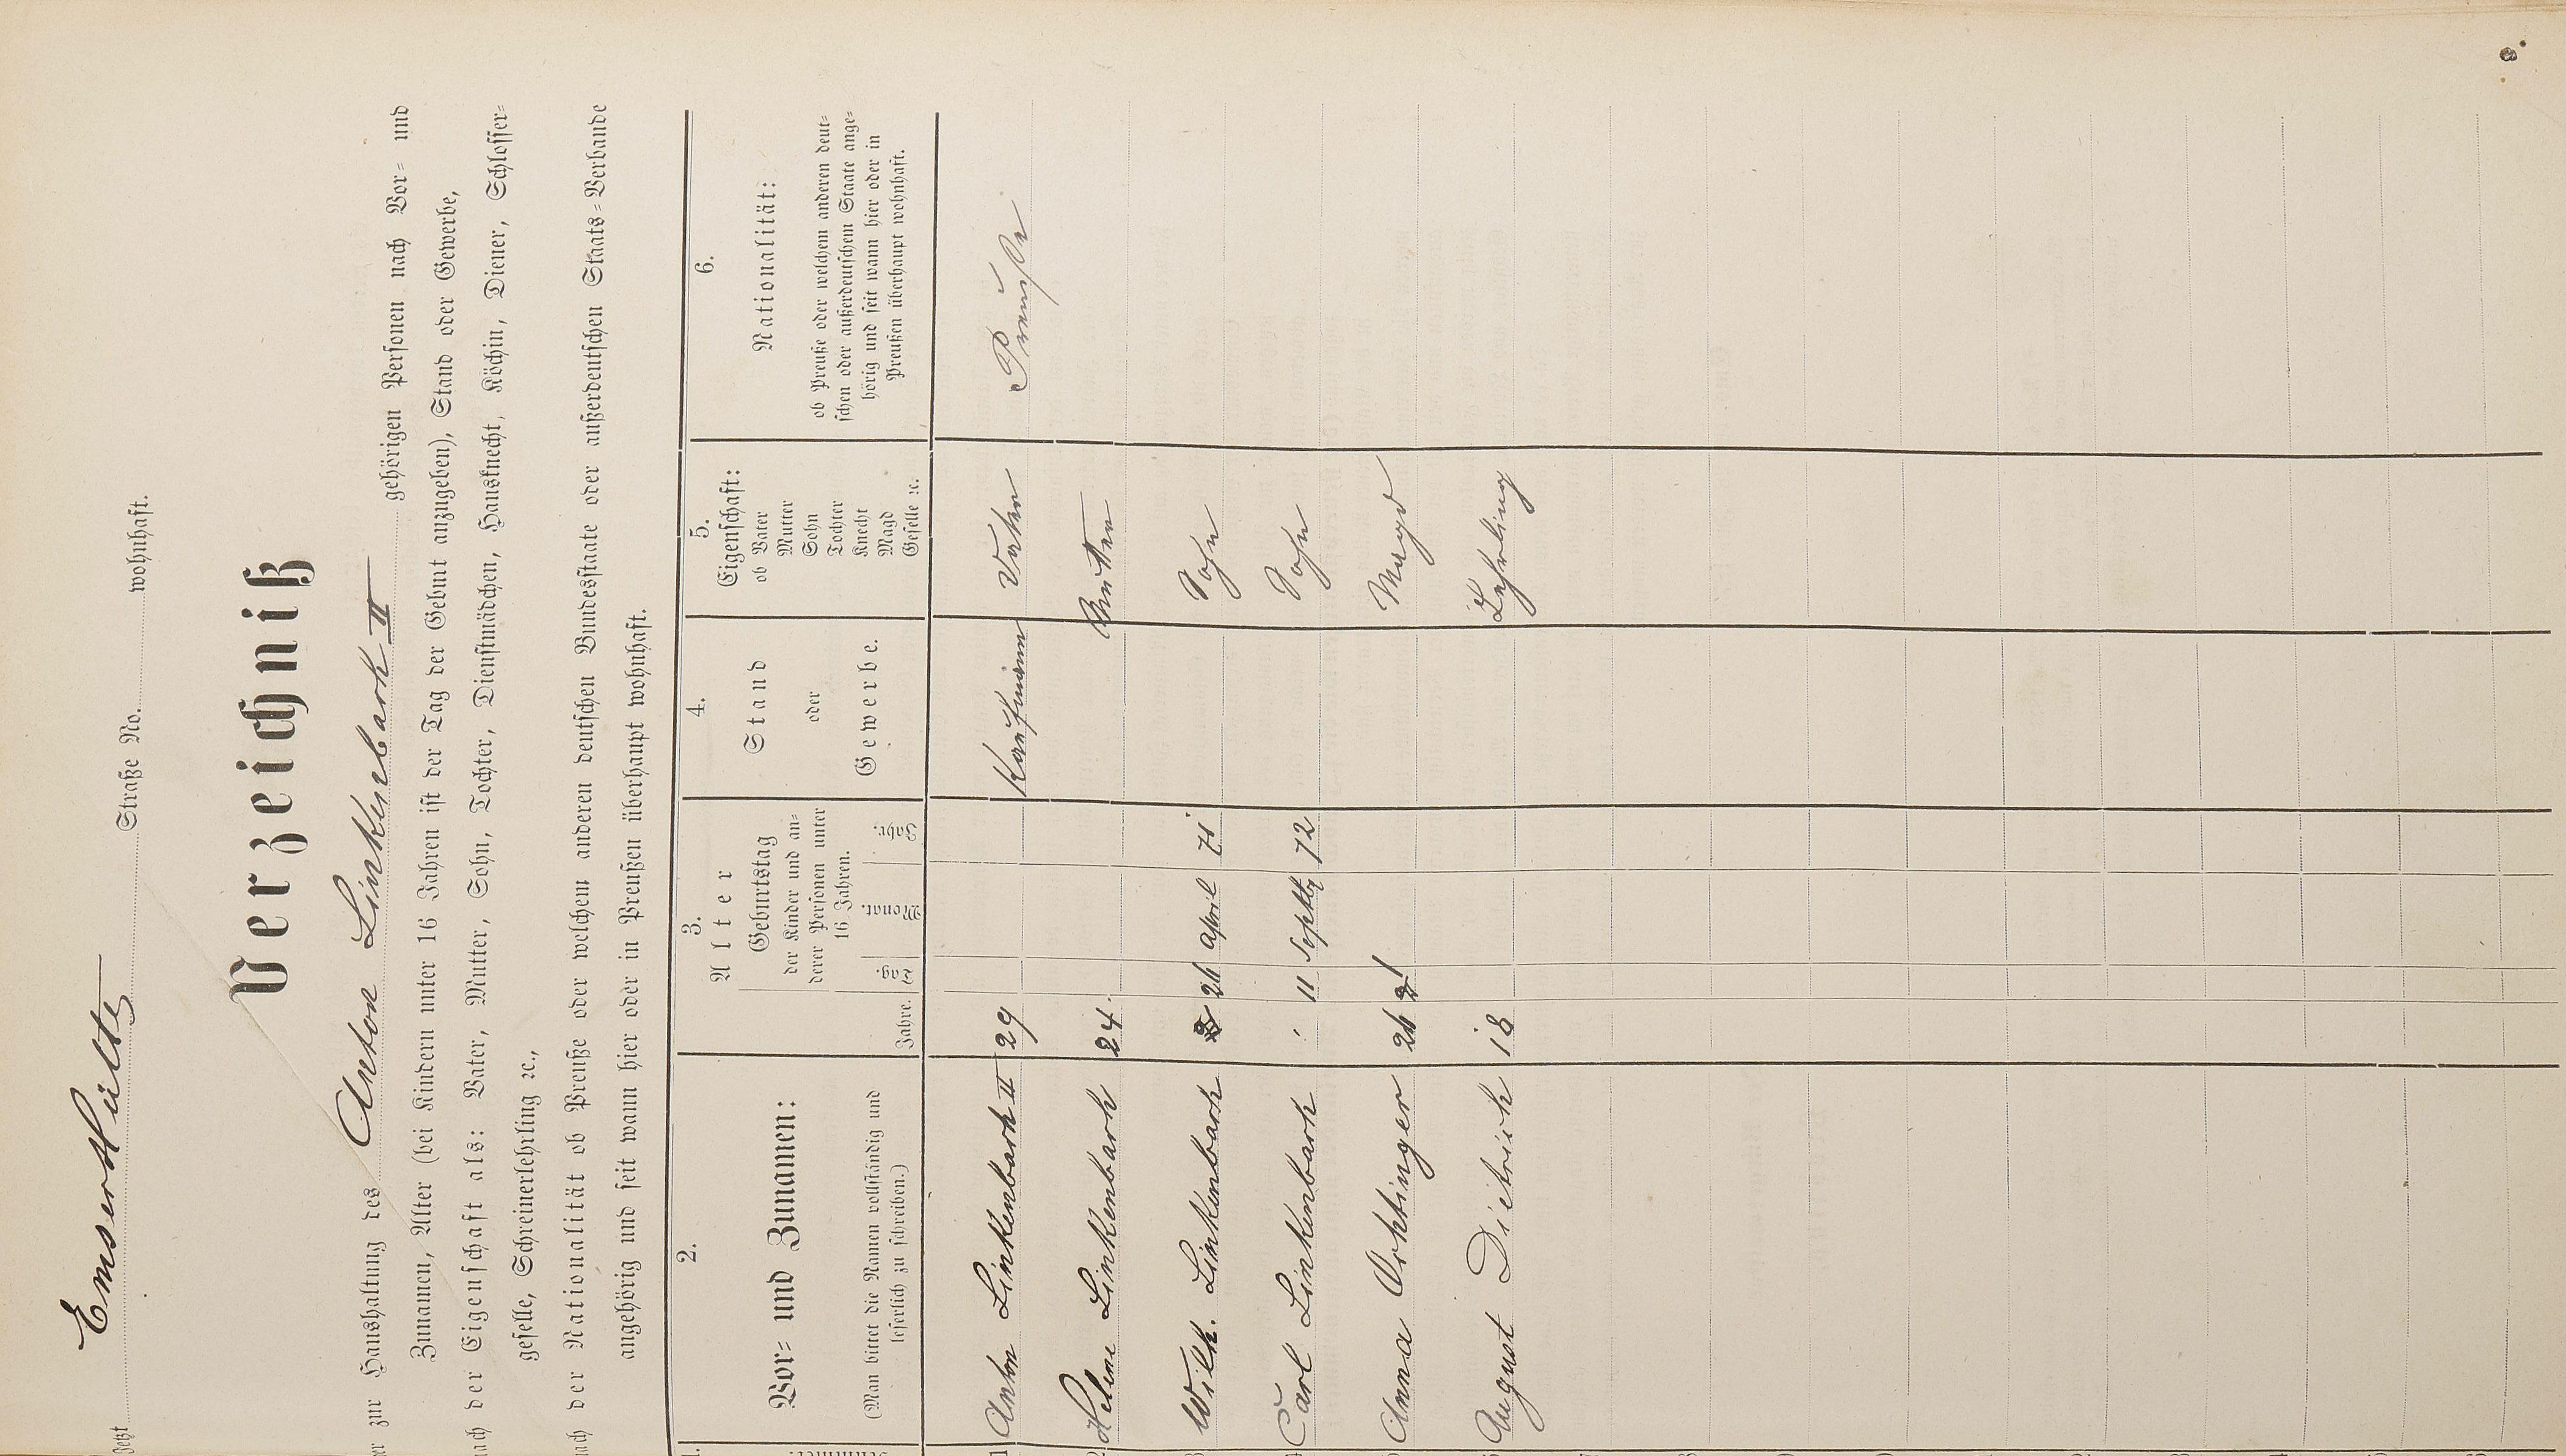 Jetzt EmserHütte Straße No. wohnhaft.
Verzeichniß
zur Haushaltung des Anton Linkenbach II gehörigen Personen nach Vor= und
Zunamen, Alter (bei Kindern unter 16 Jahren ist der Tag der Geburt anzugeben), Stand oder Gewerbe,
nach der Eigenschaft als: Vater, Mutter, Sohn, Tochter, Dienstmädchen, Hausknecht, Köchin, Diener, Schlosser=
geselle, Schreinerlehrling ꝛc.,
nach der Nationalität ob Preuße oder welchem anderen deutschen Bundesstaate oder außerdeutschen Staats=Verbande
angehörig und seit wann hier oder in Preußen überhaupt wohnhaft.
2.
Vor= und Zunamen:
(Man bittet die Namen vollständig und
leserlich zu schreiben.)
3.
Alter
Jahre.
Geburtstag
der Kinder und an=
derer Personen unter
16 Jahren.
Tag.
Monat.
Jahr.
4.
Stand
oder
Gewerbe.
5.
Eigenschaft:
ob Vater
Mutter
Sohn
Tochter
Knecht
Magd
Geselle ꝛc.
6.
Nationalität:
ob Preuße oder welchem anderen deut=
schen oder außerdeutschem Staate ange=
hörig und seit wann hier oder in
Preußen überhaupt wohnhaft.
1 Anton Linkenbach II 29 Kaufmann Vater Preuße
2 Helene Linkenbach 24. Mutter
3 Wilh. Linkenbach 26 April 71 Sohn
Carl Linkenbach 11 Septbr 72 Sohn
Anna Ochtinger 26 Magd
August Dietrich 18 Lehrling